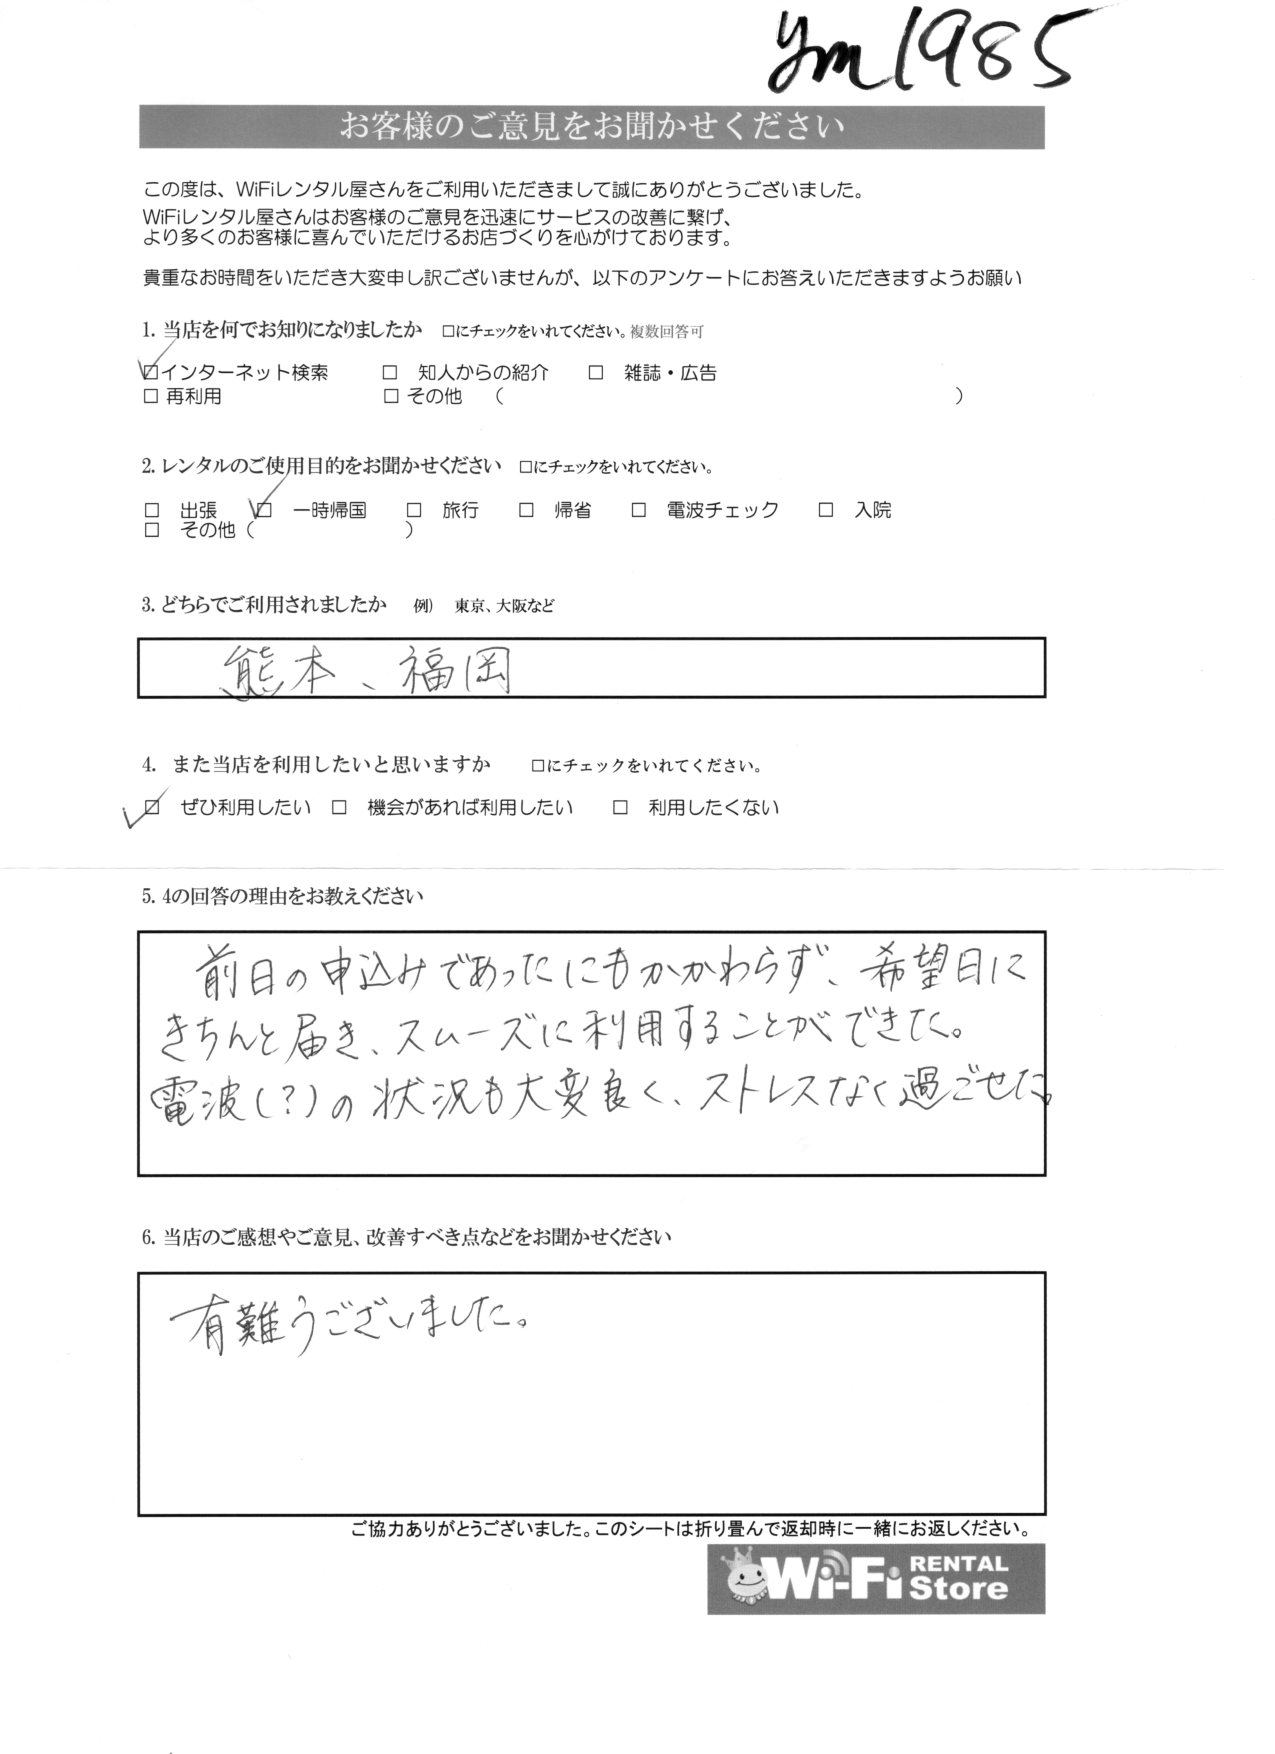 ym1985
お客様のご意見をお聞かせください
この度は、WiFiレンタル屋さんをご利用いただきまして誠にありがとうございました。
WiFiレンタル屋さんはお客様のご意見を迅速にサービスの改善に繋げ、
より多くのお客様に喜んでいただけるお店づくりを心がけております。
貴重なお時間をいただき大変申し訳ございませんが、以下のアンケートにお答えいただきますようお願い
1. 当店を何でお知りになりましたか □にチェックをいれてください。複数回答可
☑インターネット検索 □ 知人からの紹介 □ 雑誌・広告
□ 再利用 □ その他 ( )
2. レンタルのご使用目的をお聞かせください □にチェックをいれてください。
□ 出張 ☑ 一時帰国 □ 旅行 □ 帰省 □ 電波チェック □ 入院
□ その他 ( )
3. どちらでご利用されましたか 例) 東京、大阪など
熊本、福岡
4. また当店を利用したいと思いますか □にチェックをいれてください。
☑ ぜひ利用したい □ 機会があれば利用したい □ 利用したくない
5. 4の回答の理由をお教えください
前日の申込みであったにもかかわらず、希望日に
きちんと届き、スムーズに利用することができた。
電波(?)の状況も大変良く、ストレスなく過ごせた。
6. 当店のご感想やご意見、改善すべき点などをお聞かせください
有難うございました。
ご協力ありがとうございました。このシートは折り畳んで返却時に一緒にお返しください。
Wi-Fi RENTAL Store